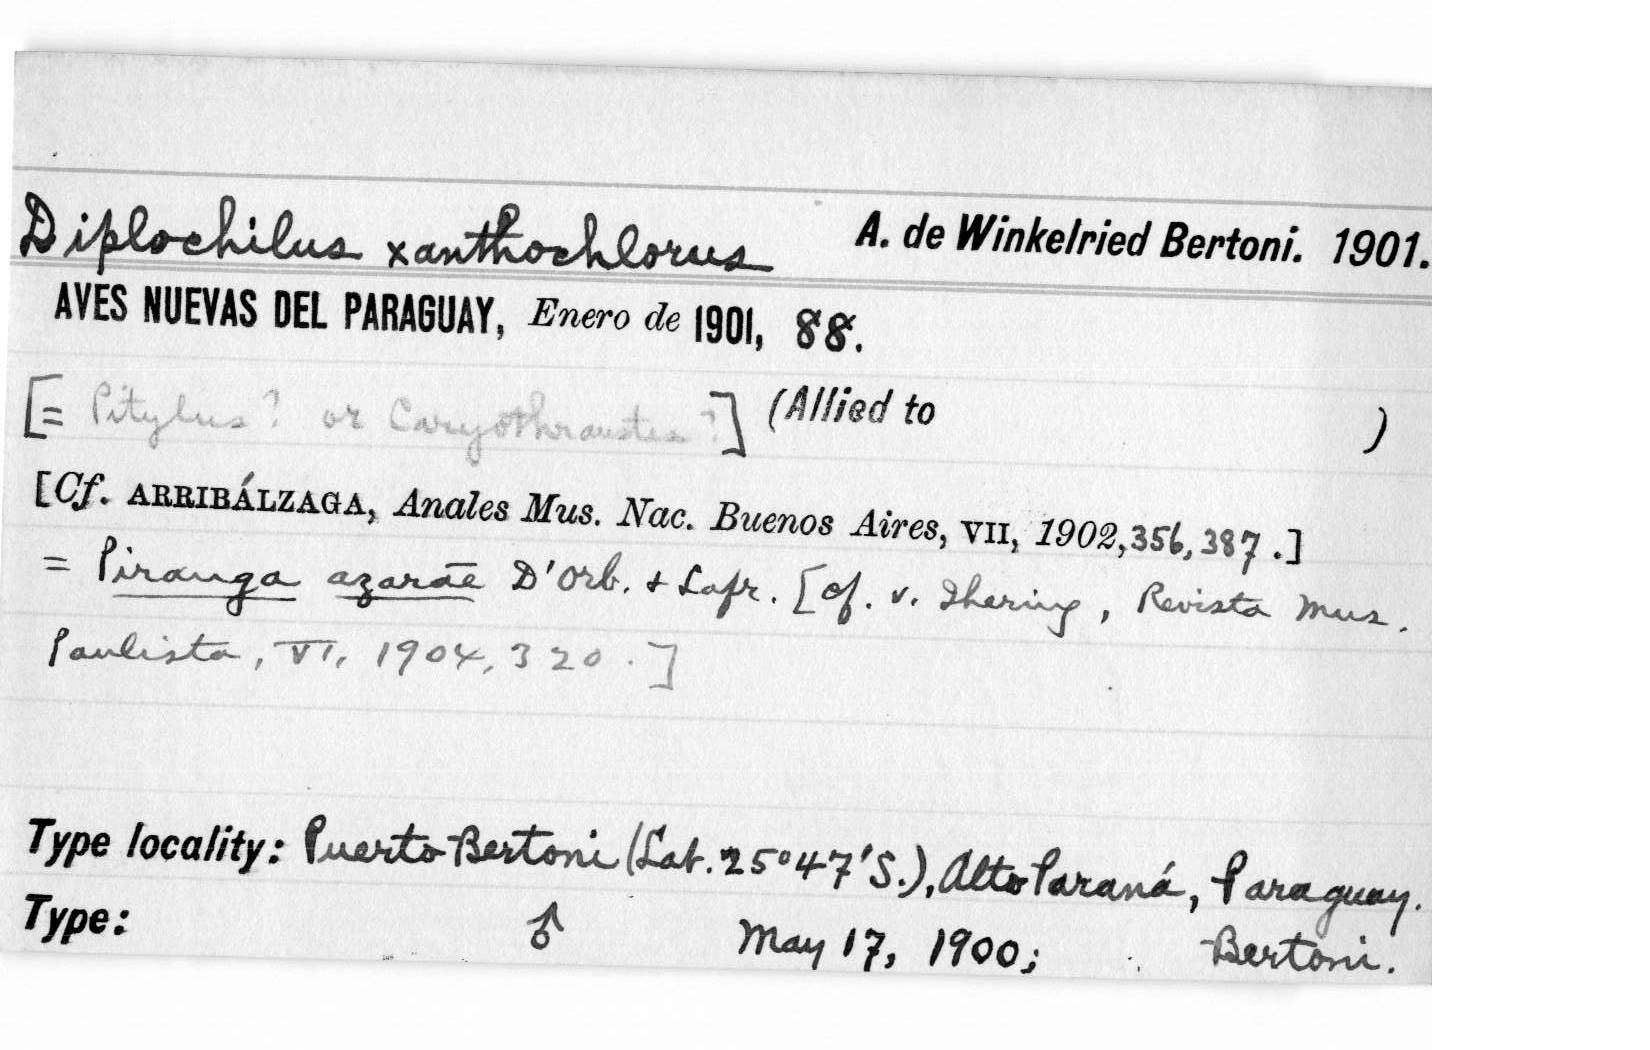 Diplochilus xanthochlorus A. de Winkelried Bertoni. 1901.
AVES NUEVAS DEL PARAGUAY, Enero de 1901, 88.
[= Pitylus? or Caryothraustes?] (Allied to )
[Cf. ARRIBÁLZAGA, Anales Mus. Nac. Buenos Aires, VII, 1902, 356, 387.]
= Piranga azarae D'Orb. + Lafr. [cf. v. Ihering, Revista Mus.
Paulista, VI, 1904, 320.]
Type locality: Puerto Bertoni (Lat. 25°47'S.), Alto Paraná, Paraguay.
Type: ♂ May 17, 1900; Bertoni.